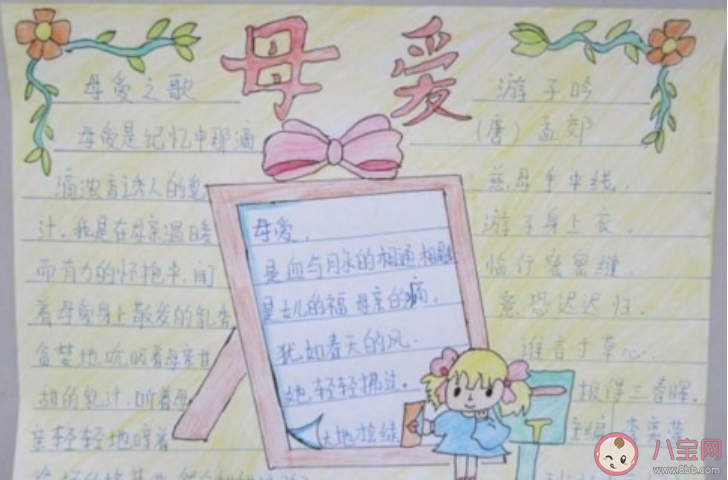 母爱
母爱之歌
母爱是记忆中那滴
滴浓香诱人的乳
汁,我是在母亲温暖
而有力的怀抱中,闻
着母爱身上散发的乳香
贪婪地吮吸着母亲甘
甜的乳汁,听着母
亲轻轻地哼着
母爱,
是血与月永的相通相融
是女儿的福母亲的痛,
犹如春天的风.
她轻轻拂过.
大地披绿
游子吟
(唐)孟郊
慈母手中线,
游子身上衣,
临行密密缝,
意恐迟迟归.
谁言寸草心,
报得三春晖.
主编:李
八宝网
www.8bb.com